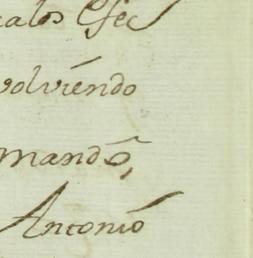 calos Efec
volviendo
mandó,
Antonio